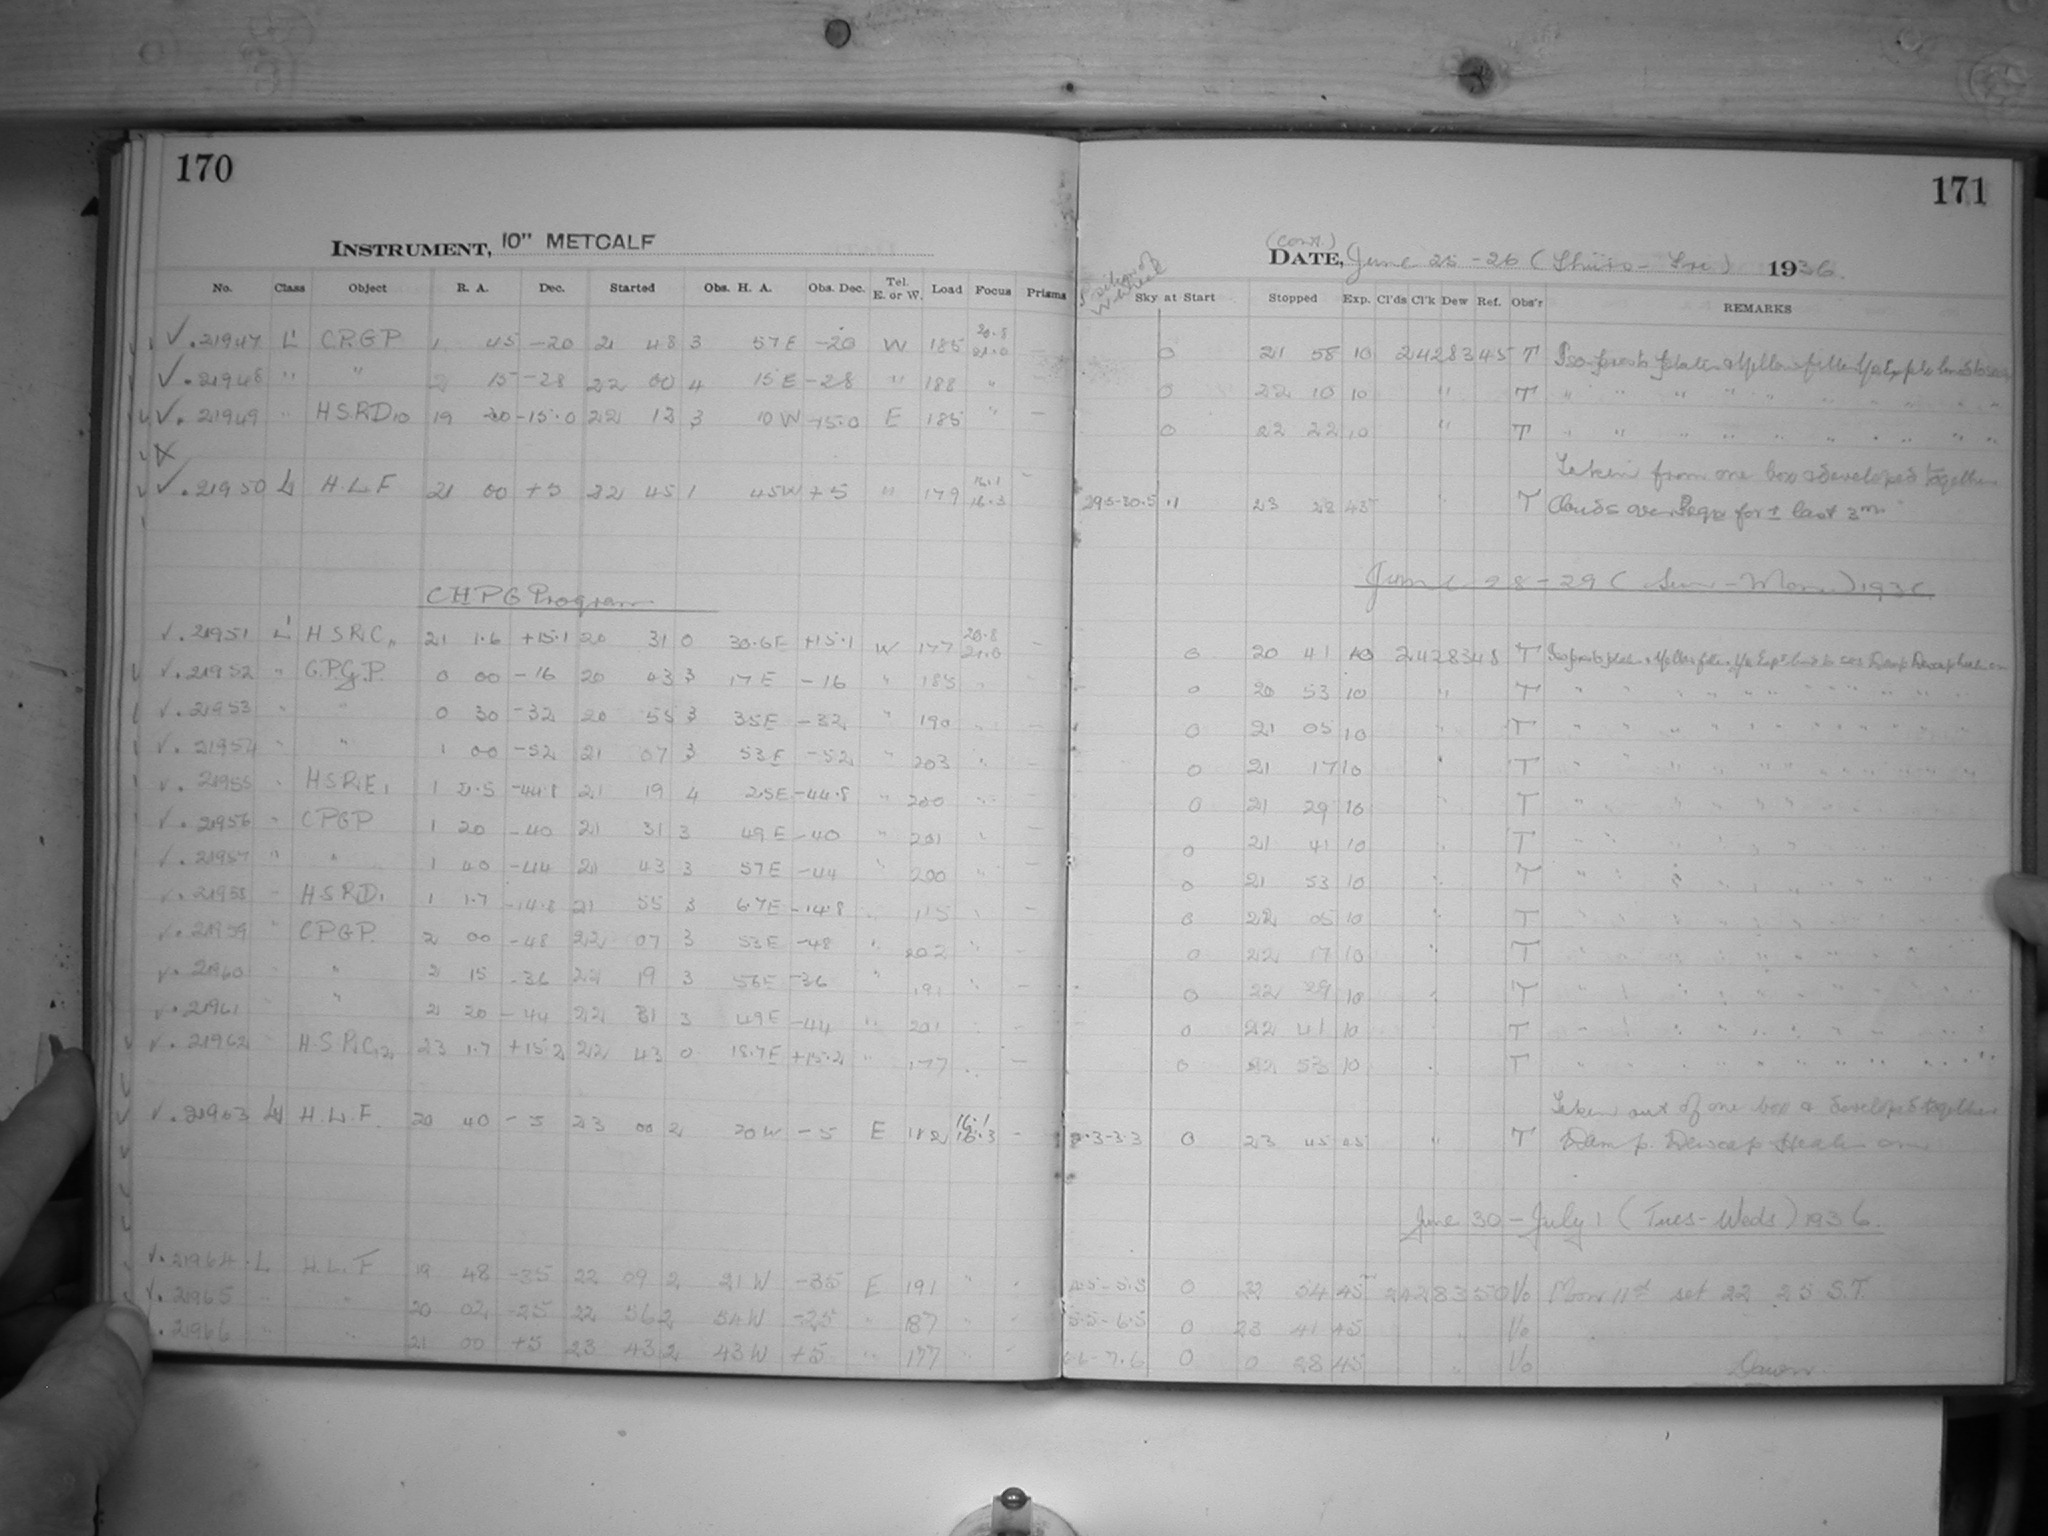 170
INSTRUMENT, 10" METCALF
No. Class Object R. A. Dec. Started Obs. H. A. Obs. Dec. Tel. E. or W. Load Focus Prisms
21947 L' CPGP 1 45 -20 21 48 3 57E -20 W 185 20.8 21.0
21948 " " 2 15 -28 22 00 4 15E -28 " 188 "
21949 " HSRD10 19 20 -15.0 22 12 3 10W -15.0 E 185 "
21950 H.L.F 21 00 +5 22 45 1 45W +5 " 179 16.1 16.3
CHPG Program
21951 L' HSRC11 21 1.6 +15.1 20 31 0 30.6E +15.1 W 177 20.8 21.0
21952 " C.P.G.P. 0 00 -16 20 43 3 17E -16 " 185 "
21953 " " 0 30 -32 20 55 3 35E -32 " 190 "
21954 " " 1 00 -52 21 07 3 53E -52 " 203 "
21955 " HSRE1 1 -44.8 21 19 4 25E -44.8 " 200 "
21956 " CPGP 1 20 -40 21 31 3 49E -40 " 201 "
21957 " " 1 40 -44 21 43 3 57E -44 " 200 "
21958 " HSRD1 1 1.7 -14.8 21 55 3 6.7E -14.8 "
21959 " CPGP. 2 00 -48 22 07 3 53E -48 " 202 "
21960 " 2 15 -36 22 19 3 56E -36 " 191 "
21961 " 2 20 -44 22 31 3 49E -44 " 201
21962 " HSRC12 23 1.7 +15.2 22 43 0 18.7E +15.2 " 177 "
21963 H.L.F. 20 40 -5 23 00 2 20W -5 E 182 16.1 16.3
21964 L H.L.F 19 48 -35 22 09 2 21W -35 E 191 "
21965 " " 20 02 -25 22 56 2 54W -25 " 187 "
21966 " " 21 00 +5 23 43 2 43W +5 " 177 "
171
(cont.)
DATE, June 25-26 (Thurs-Fri) 1936.
Position of Wheel
Sky at Start Stopped Exp. Cl'ds Cl'k Dew Ref. Obs'r REMARKS
0 21 58 10 2428345 T
0 22 10 10 " T
0 22 22 10 " T
Taken from one box & developed together
29.5-30.5 " 23 45 " T Clouds over for ± last 3m
June 28-29 (Sun-Mon.) 1936.
0 20 41 10 2428348 T
0 20 53 10 " T
0 21 05 10 " T
0 21 17 10 " T
0 21 29 10 " T
0 21 41 10 " T
0 21 53 10 " T
0 22 05 10 " T
0 22 17 10 " T
0 22 29 10 " T
0 22 41 10 " T
0 22 53 10 " T
Taken out of one box & developed together
0 23 45 45 " T Damp. Dewcap Heater on
June 30-July 1 (Tues-Weds) 1936.
0 22 54 45 2428350 Vo Moon 11d set 22 25 S.T.
5.5-6.5 0 23 41 45 " Vo
0 0 28 45 " Vo Dawn.